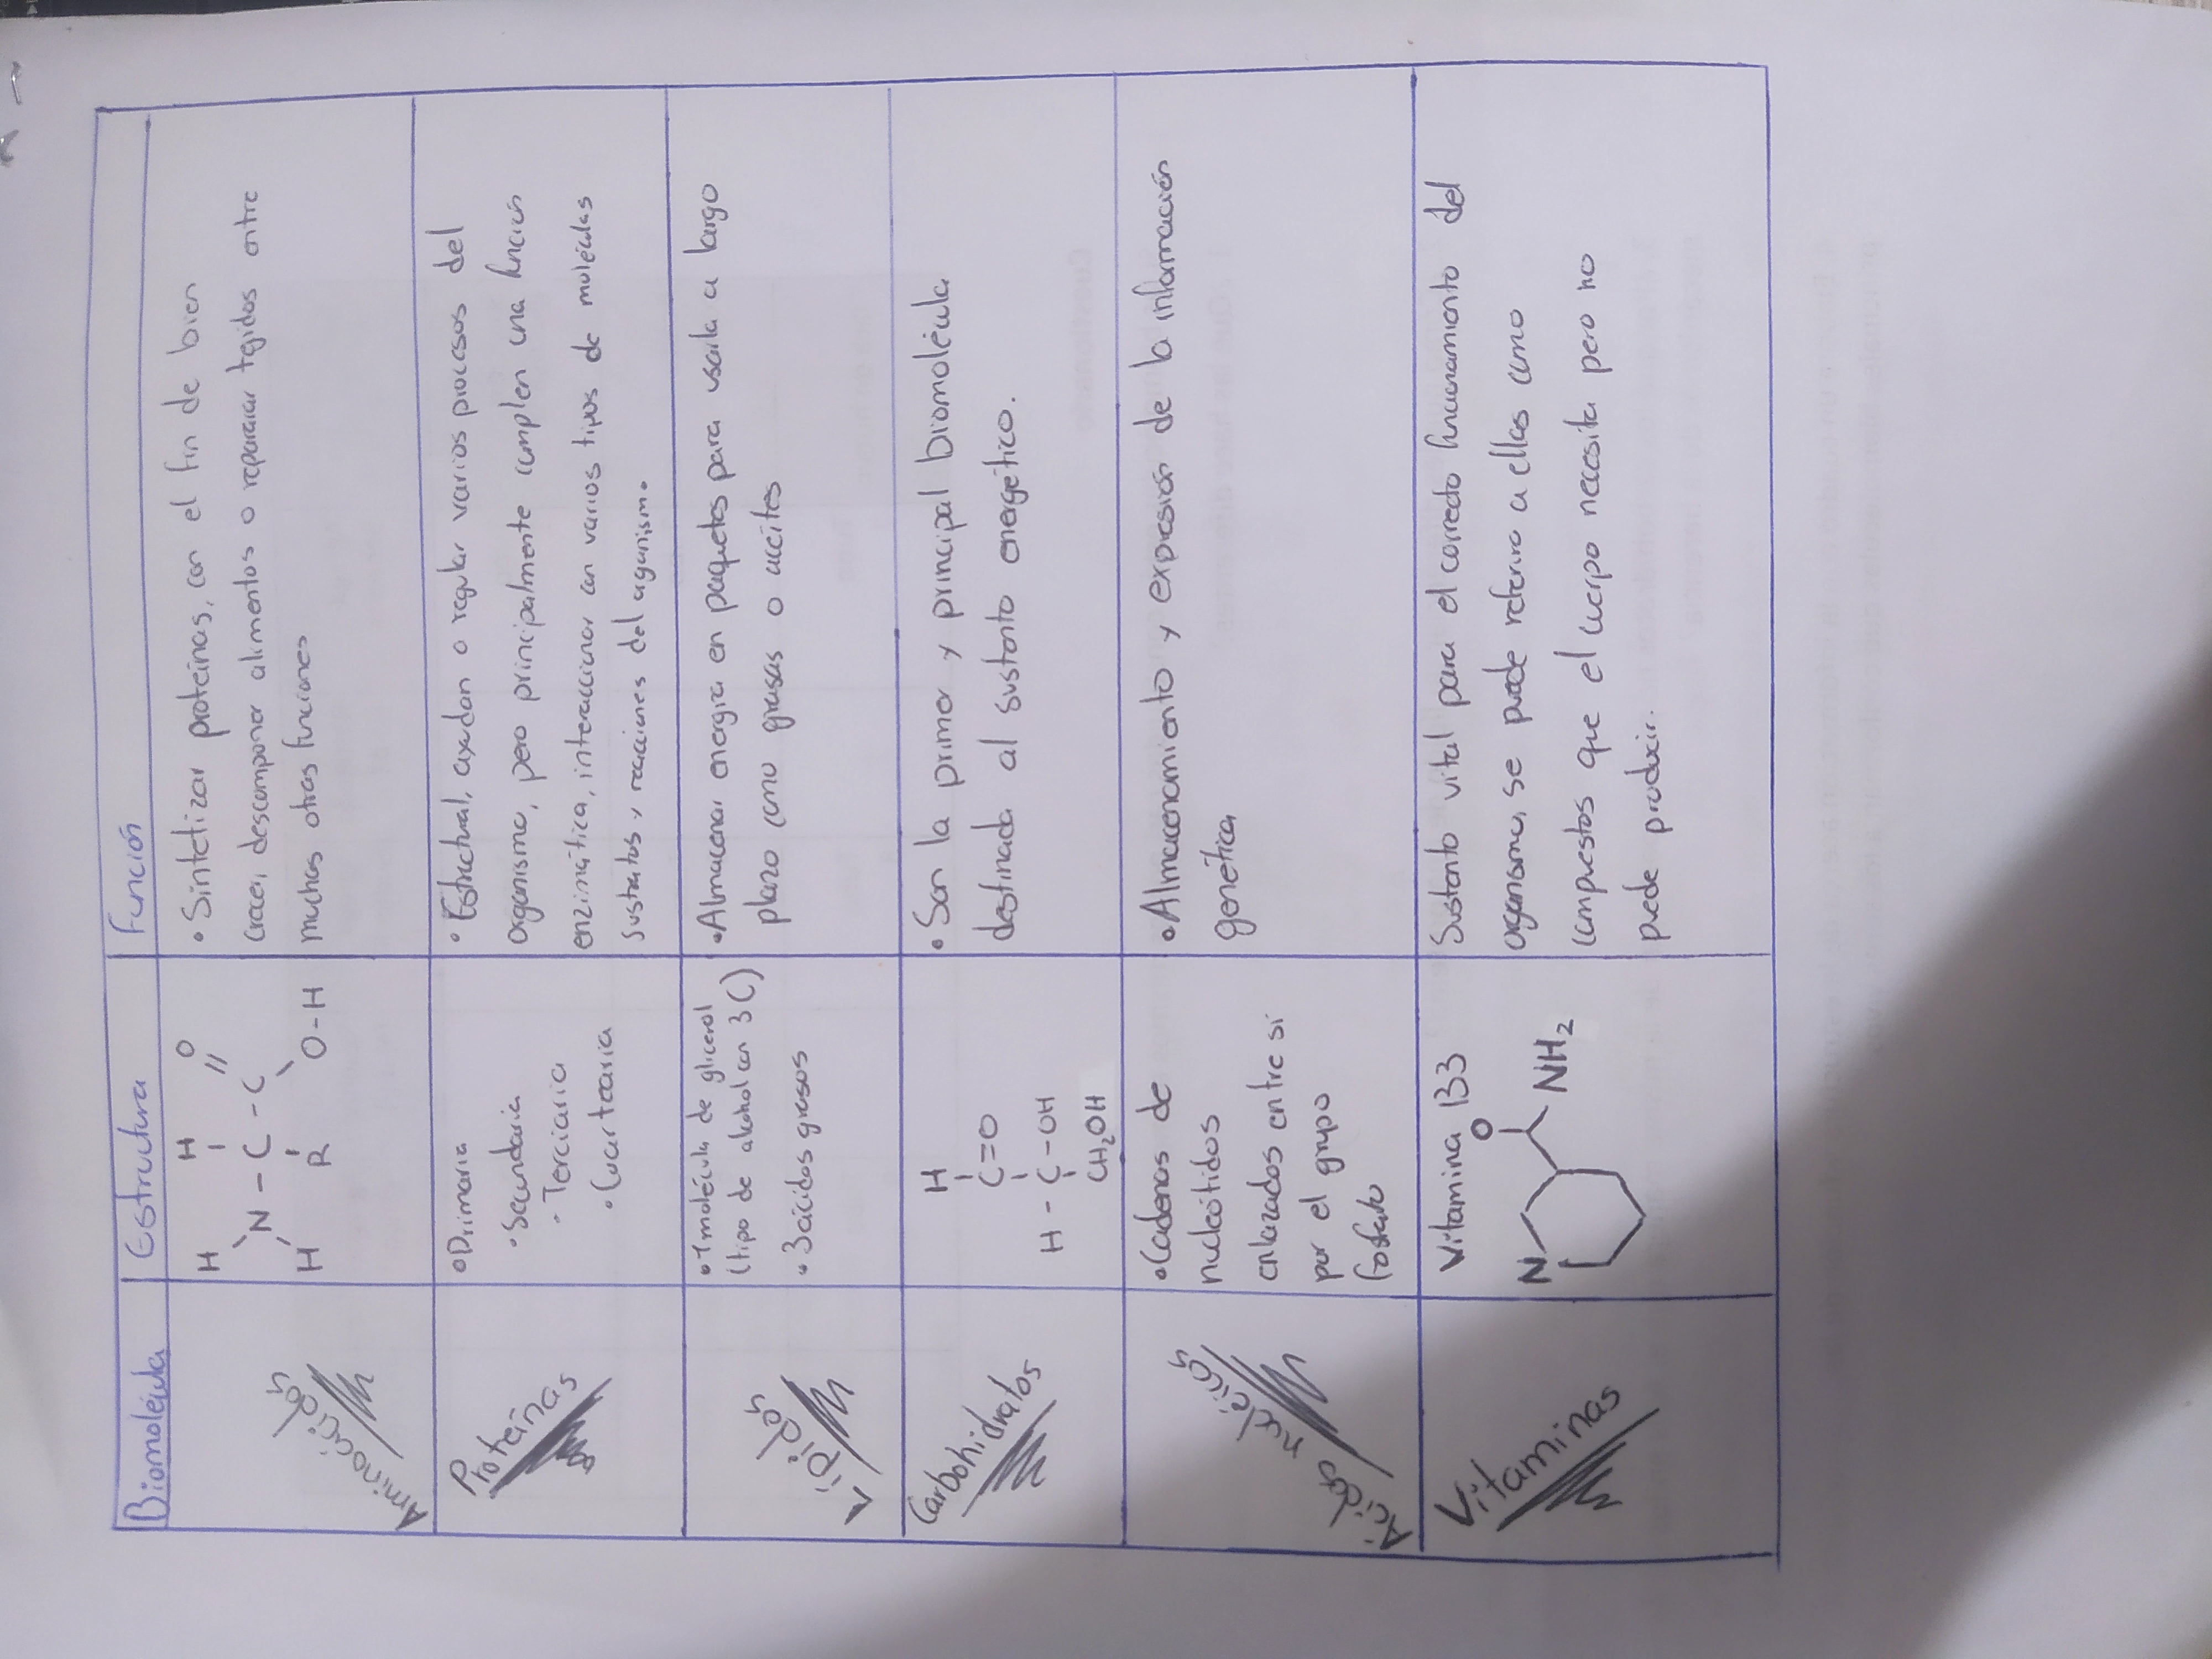 Biomolécula Estructura Función
Aminoácidos
H H O
N - C - C
H R O-H
• Sintetizar proteinas, con el fin de bien
crecer, descomponer alimentos o reparar tejidos entre
muchas otras funciones
Proteinas
• Primaria
• Secundaria
• Terciaria
• Cuartearia
• Estructural, ayudan o regular varios procesos del
organismo, pero principalmente cumplen una función
enzimática, interaccionar con varios tipos de moléculas
sustratos y reacciones del organismo
Lipidos
• 1 molécula de glicerol
(tipo de alcohol con 3 C)
• 3 ácidos grasos
• Almacenar energia en paquetes para usarla a largo
plazo como grasas o aceites
Carbohidratos
H
C=O
H - C - OH
CH₂OH
• Son la primer y principal biomolécula
destinada al sustento energético.
Ácidos nucleicos
• Cadenas de
nucleótidos
enlazados entre si
por el grupo
fosfato
• Almacenamiento y expresión de la información
genética
Vitaminas
Vitamina B3
O
N NH₂
Sustento vital para el correcto funcionamiento del
organismo, se puede referir a ellas como
compuestos que el cuerpo necesita pero no
puede producir.